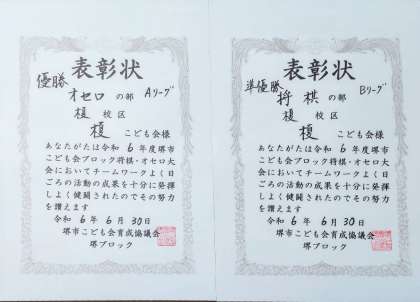 表彰状
優勝
オセロの部 Aリーグ
榎校区
榎こども会様
あなたがたは令和6年度堺市
こども会ブロック将棋・オセロ大
会においてチームワークよく日
ごろの活動の成果を十分に発揮
しよく健闘されたのでその努力
を讃えます
令和6年6月30日
堺市こども会育成協議会
堺ブロック
表彰状
準優勝
将棋の部 Bリーグ
榎校区
榎こども会様
あなたがたは令和6年度堺市
こども会ブロック将棋・オセロ大
会においてチームワークよく日
ごろの活動の成果を十分に発揮
しよく健闘されたのでその努力
を讃えます
令和6年6月30日
堺市こども会育成協議会
堺ブロック